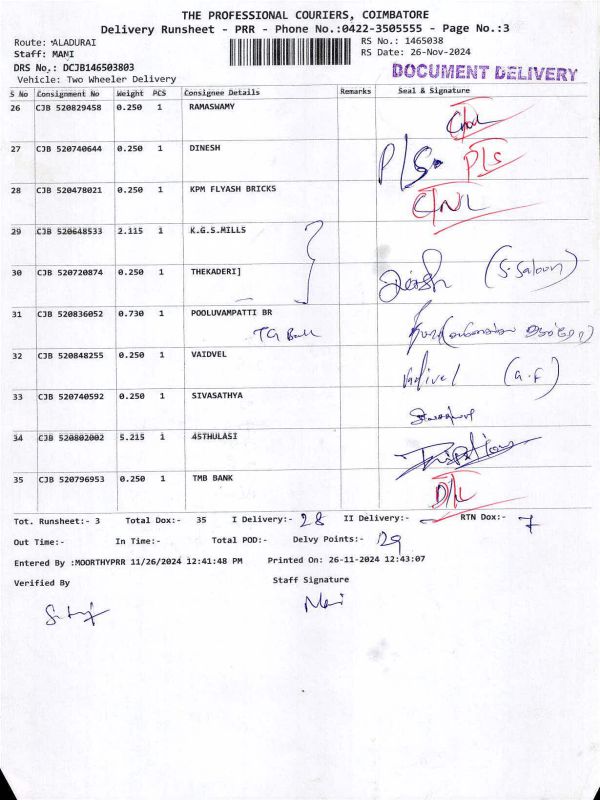 THE PROFESSIONAL COURIERS, COIMBATORE
Delivery Runsheet - PRR - Phone No.:0422-3505555 - Page No.:3
Route: ALADURAI RS No.: 1465038
Staff: MANI RS Date: 26-Nov-2024
DRS No.: DCJB146503803 DOCUMENT DELIVERY
Vehicle: Two Wheeler Delivery
S No Consignment No Weight PCS Consignee Details Remarks Seal & Signature
26 CJB 520829458 0.250 1 RAMASWAMY
27 CJB 520740644 0.250 1 DINESH P/S P/S
28 CJB 520478021 0.250 1 KPM FLYASH BRICKS CNL
29 CJB 520648533 2.115 1 K.G.S.MILLS
30 CJB 520720874 0.250 1 THEKADERI] (S.Saloon)
31 CJB 520836052 0.730 1 POOLUVAMPATTI BR
32 CJB 520848255 0.250 1 VAIDVEL Vadivel (G.F)
33 CJB 520740592 0.250 1 SIVASATHYA
34 CJB 520802002 5.215 1 45THULASI
35 CJB 520796953 0.250 1 TMB BANK D/L
Tot. Runsheet:- 3 Total Dox:- 35 I Delivery:- 28 II Delivery:- RTN Dox:- 7
Out Time:- In Time:- Total POD:- Delvy Points:- 129
Entered By :MOORTHYPRR 11/26/2024 12:41:48 PM Printed On: 26-11-2024 12:43:07
Verified By Staff Signature
Mani